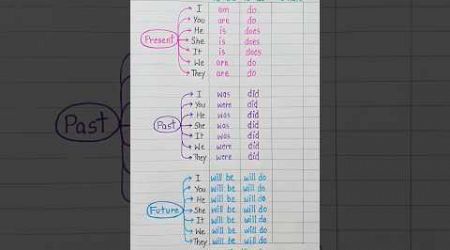 I am do
You are do
He is does
Present She is does
It is does
We are do
They are do
I was did
You were did
He was did
Past Past She was did
It was did
We were did
They were did
I will be will do
You will be will do
He will be will do
Future She will be will do
It will be will do
We will be will do
They will be will do